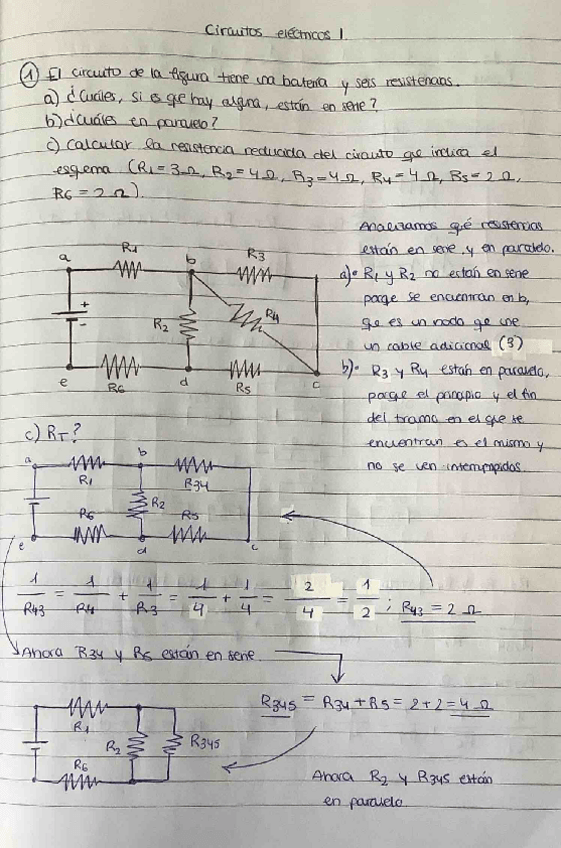 Circuitos eléctricos 1
① El circuito de la figura tiene una batería y seis resistencias.
a) ¿Cuáles, si es que hay alguna, están en serie?
b) ¿Cuáles en paralelo?
c) Calcular la resistencia reducida del circuito que indica el
esquema (R1 = 3 Ω, R2 = 4 Ω, R3 = 4 Ω, R4 = 4 Ω, R5 = 2 Ω,
R6 = 2 Ω).
Analizamos qué resistencias
están en serie y en paralelo.
a)• R1 y R2 no están en serie
porque se encuentran en b,
que es un nodo que une
un cable adicional (3)
b)• R3 y R4 están en paralelo,
porque el principio y el fin
del tramo en el que se
encuentran es el mismo y
no se ven interrumpidos
a R1 b R3
+
-
R2 R4
e R6 d R5 c
c) RT?
a R1 b R34
R2
e R6 d R5 c
1/R43 = 1/R4 + 1/R3 = 1/4 + 1/4 = 2/4 = 1/2 ; R43 = 2 Ω
Ahora R34 y R5 están en serie
R345 = R34 + R5 = 2 + 2 = 4 Ω
R1
R2 R345
R6
Ahora R2 y R345 están
en paralelo